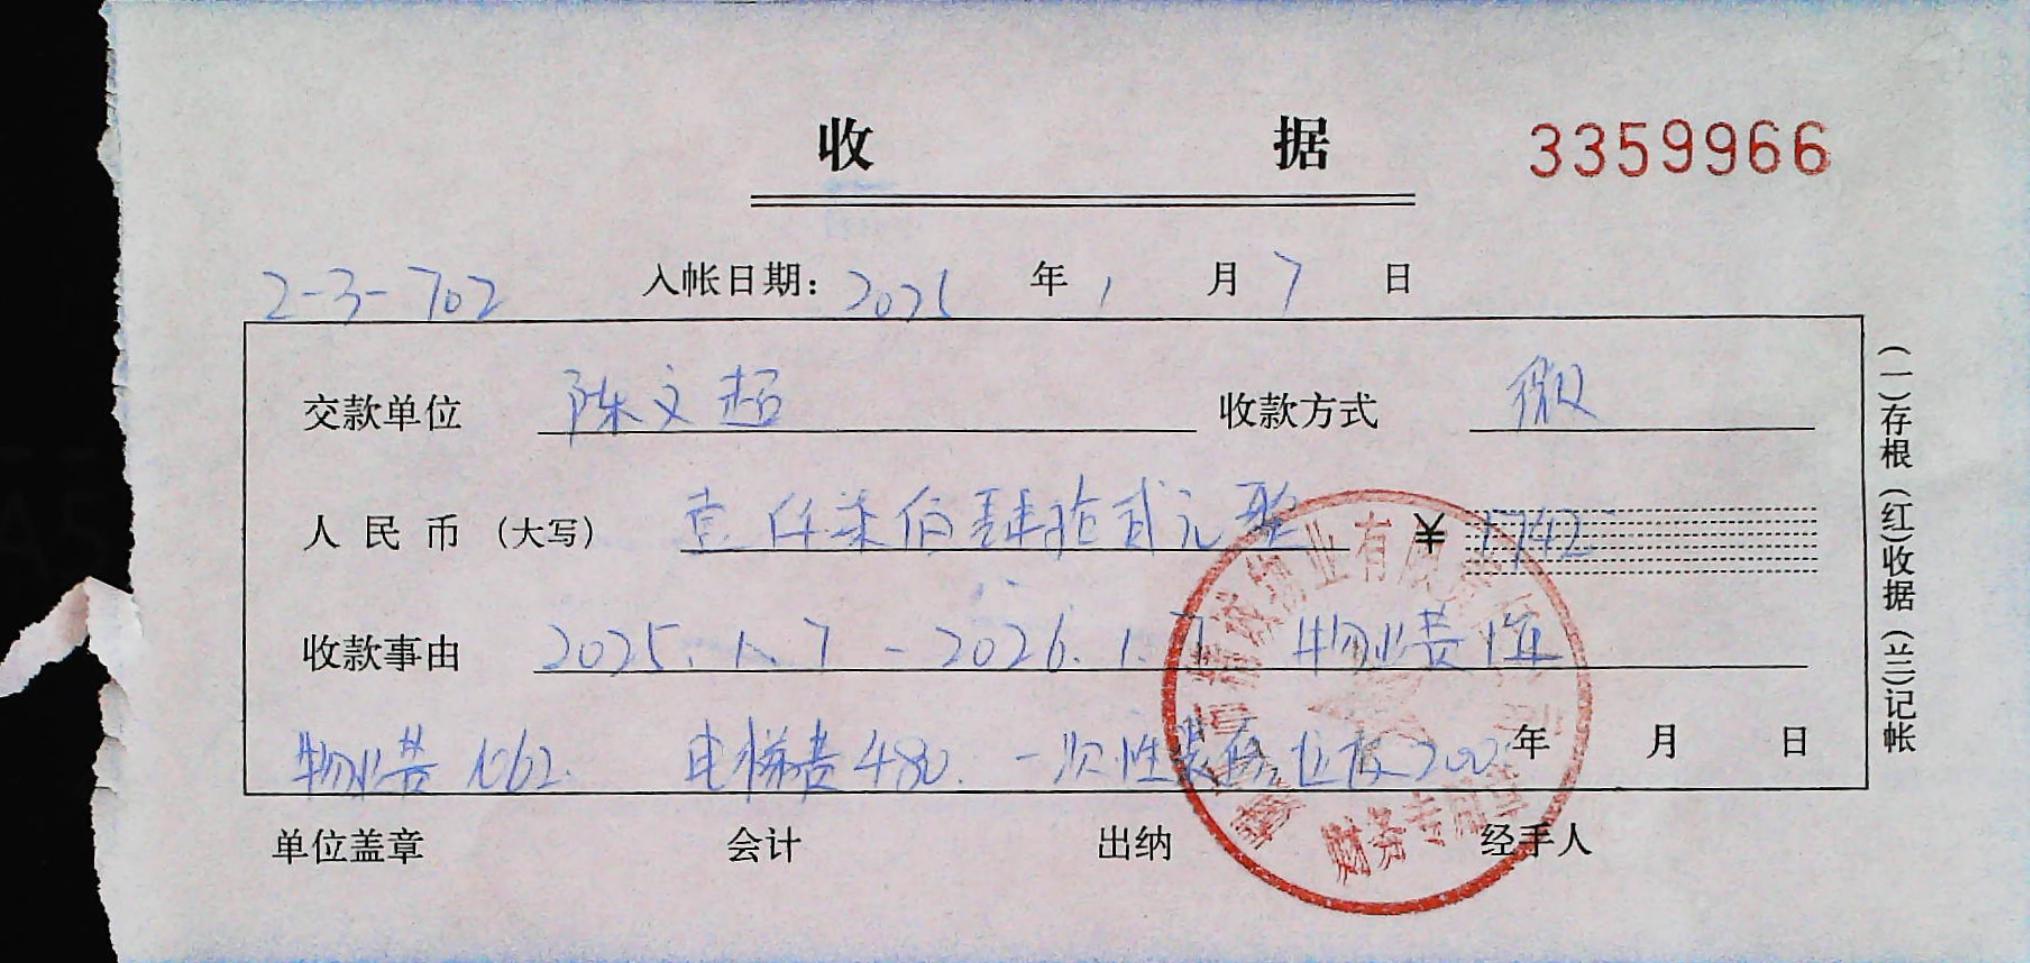 收 据 3359966
2-3-702 入帐日期: 2025 年 1 月 7 日
交款单位 陈文超 收款方式 微
人民币 (大写) 壹仟柒佰肆拾贰元整 ¥ 1742
收款事由 2025.1.7-2026.1.7 物业费1年
物业费1062. 电梯费480. 一次性装修垃圾200. 年 月 日
单位盖章 会计 出纳 经手人
(一)存根 (红)收据 (三)记帐
物业有限
财务专用章